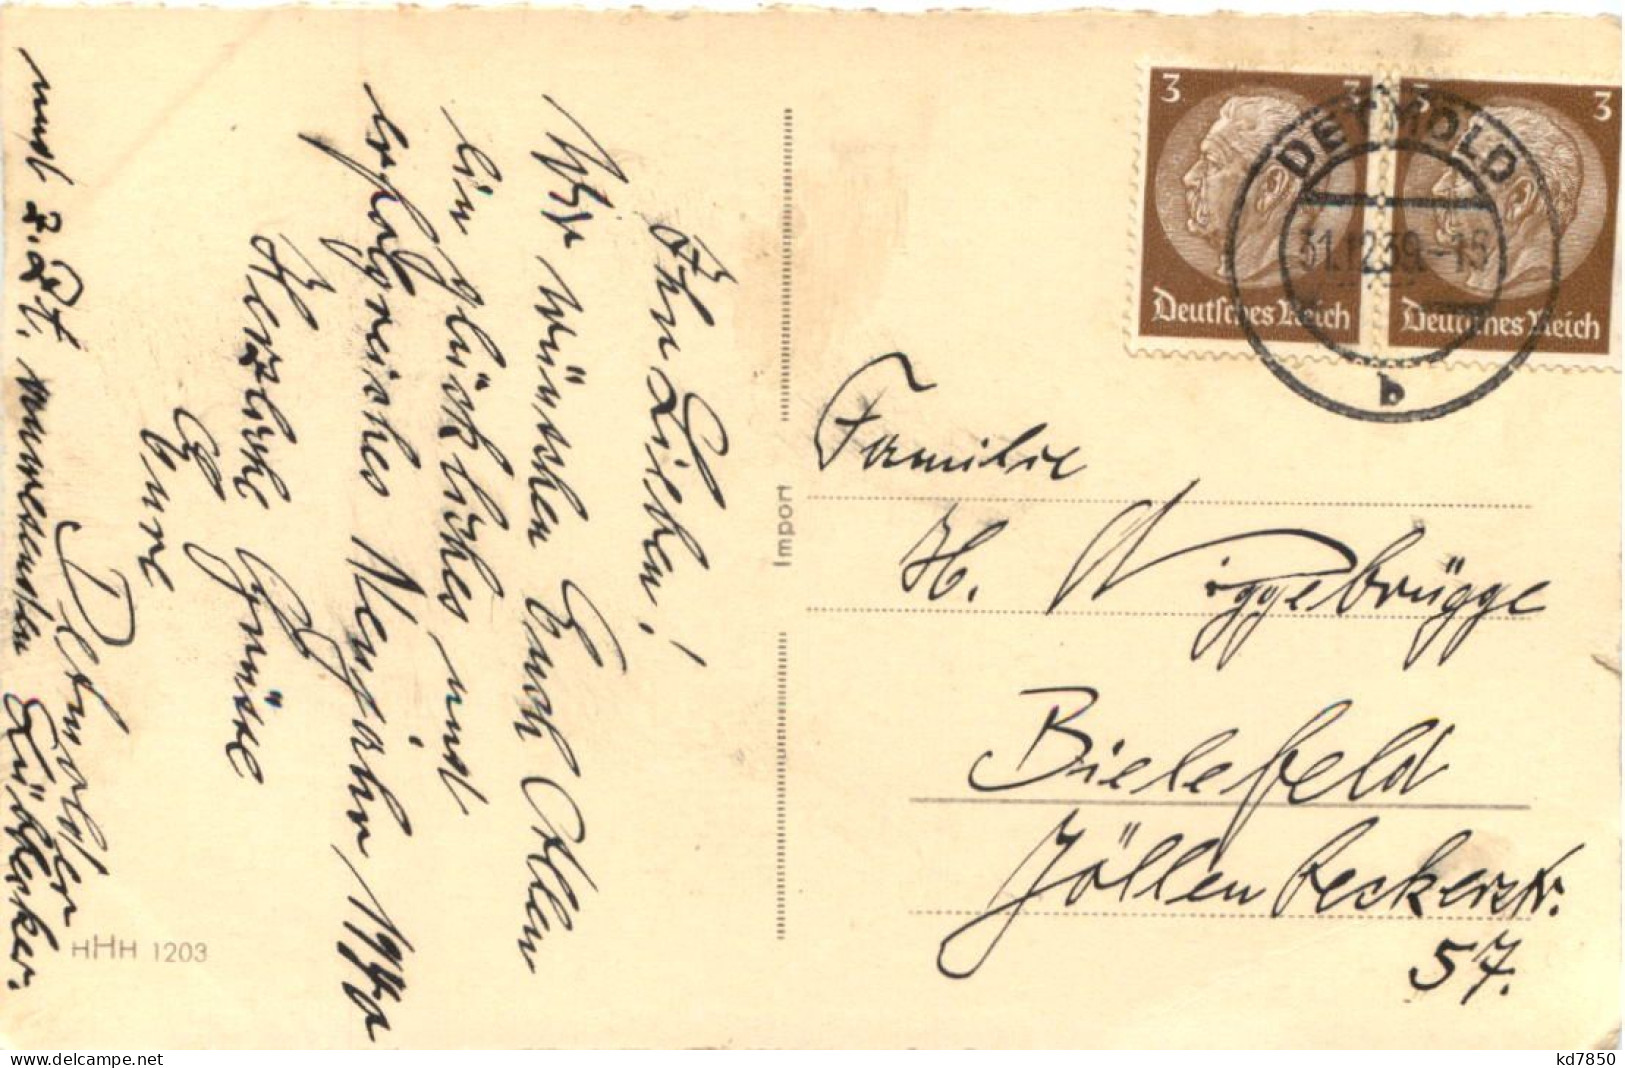 Ihr Lieben!
Wir wünschen Euch Allen
ein glückliches und
erfolgreiches Neujahr 1940
Herzliche Grüsse
Eure
Detmolder
und z. Zt. anwesenden Lübbecker.
HHH 1203
Import
3 3
Deutsches Reich
3 3
Deutsches Reich
DETMOLD
31.12.39.-15
b
Familie
H. Niggebrügge
Bielefeld
Jöllenbeckerstr.
57.
www.delcampe.net
kd7850